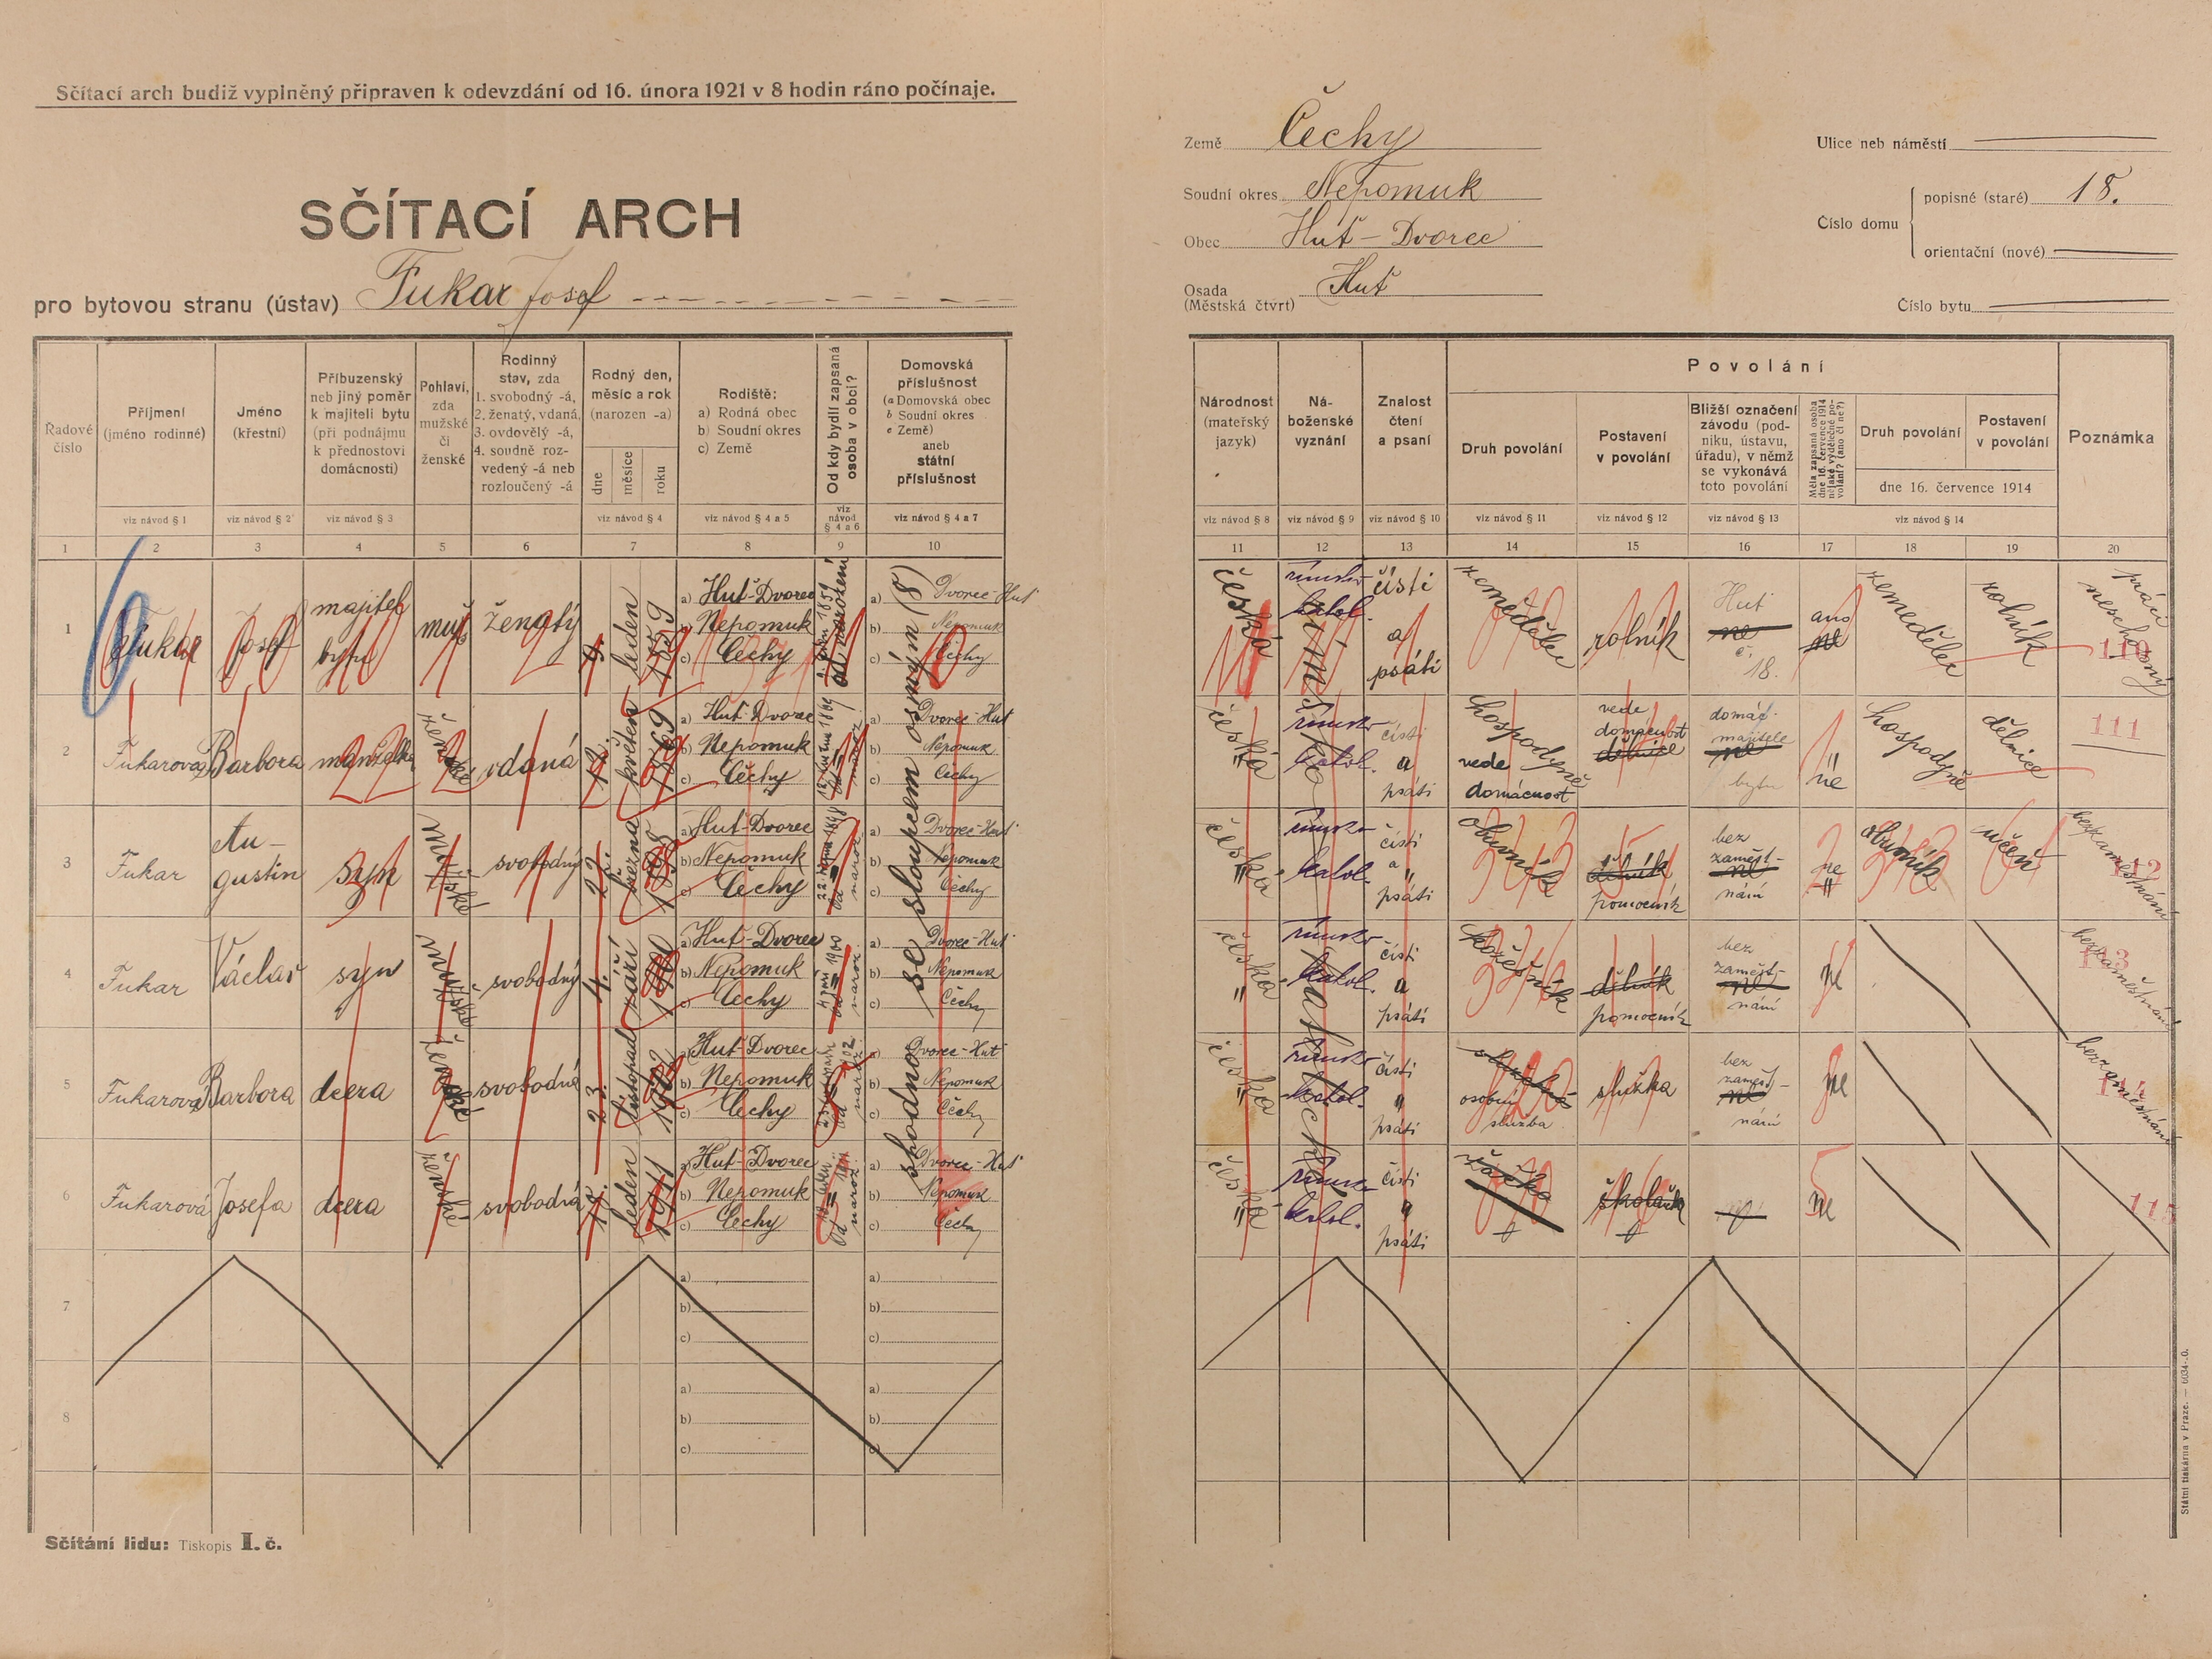 Sčítací arch budiž vyplněný připraven k odevzdání od 16. února 1921 v 8 hodin ráno počínaje.
SČÍTACÍ ARCH
pro bytovou stranu (ústav) Fukar Josef
Země Čechy
Soudní okres Nepomuk
Obec Huť-Dvorec
Osada Huť
(Městská čtvrt)
Ulice neb náměstí
Číslo domu
popisné (staré) 18.
orientační (nové)
Číslo bytu
Řadové číslo
Příjmení (jméno rodinné)
Jméno (křestní)
Příbuzenský neb jiný poměr k majiteli bytu (při podnájmu k přednostovi domácnosti)
Pohlaví, zda mužské či ženské
Rodinný stav, zda 1. svobodný -á, 2. ženatý, vdaná, 3. ovdovělý -á, 4. soudně rozvedený -á neb rozloučený -á
Rodný den, měsíc a rok (narozen -a)
dne měsíce roku
Rodiště: a) Rodná obec b) Soudní okres c) Země
Od kdy bydlí zapsaná osoba v obci?
Domovská příslušnost (a Domovská obec b Soudní okres c Země) aneb státní příslušnost
Národnost (mateřský jazyk)
Náboženské vyznání
Znalost čtení a psaní
Povolání
Druh povolání
Postavení v povolání
Bližší označení závodu (podniku, ústavu, úřadu), v němž se vykonává toto povolání
Měla zapsaná osoba dne 16. července 1914 nějaké výdělečné povolání? (ano či ne?)
Druh povolání
Postavení v povolání
dne 16. července 1914
Poznámka
viz návod § 1 viz návod § 2 viz návod § 3 viz návod § 4 viz návod § 4 a 5 viz návod § 4 a 6 viz návod § 4 a 7
viz návod § 8 viz návod § 9 viz návod § 10 viz návod § 11 viz návod § 12 viz návod § 13 viz návod § 14
1 2 3 4 5 6 7 8 9 10
11 12 13 14 15 16 17 18 19 20
1 Fukar Josef majitel bytu muž ženatý 9. leden 1859 a) Huť-Dvorec b) Nepomuk c) Čechy od narození a) Dvorec-Huť b) Nepomuk c) Čechy
česká římsko katol. čísti a psáti zemědělec rolník Huť ne č. 18. ano ne zemědělec rolník práci neschopný 110
2 Fukarová Barbora manželka ženské vdaná 12. květen 1869 a) Huť-Dvorec b) Nepomuk c) Čechy a) Dvorec-Huť b) Nepomuk c) Čechy
česká římsko katol. čísti a psáti hospodyně vede domácnost vede domácnost dělnice domác. majitele ne bytu ne hospodyně dělnice 111
3 Fukar Augustin syn mužské svobodný 22. března 1898 a) Huť-Dvorec b) Nepomuk c) Čechy a) Dvorec-Huť b) Nepomuk c) Čechy
česká římsko katol. čísti a psáti obuvník dělník pomocník bez zaměstnání ne obuvník učeň bez zaměstnání 112
4 Fukar Václav syn mužské svobodný 4. září 1900 a) Huť-Dvorec b) Nepomuk c) Čechy a) Dvorec-Huť b) Nepomuk c) Čechy
česká římsko katol. čísti a psáti dělník pomocník bez zaměstnání ne bez zaměstnání 113
5 Fukarová Barbora dcera ženské svobodná 23. listopad 1902 a) Huť-Dvorec b) Nepomuk c) Čechy a) Dvorec-Huť b) Nepomuk c) Čechy
česká římsko katol. čísti psáti osobní služba služka bez zaměstnání ne bez zaměstnání 114
6 Fukarová Josefa dcera ženské svobodná leden 1911 a) Huť-Dvorec b) Nepomuk c) Čechy a) Dvorec-Huť b) Nepomuk c) Čechy
česká římsko katol. čísti psáti žačka ne 115
shodnor se sloupcem osmým (8)
7 a) b) c) a) b) c)
8 a) b) c) a) b) c)
Sčítání lidu: Tiskopis I. č.
Státní tiskárna v Praze. — 6034-.0.